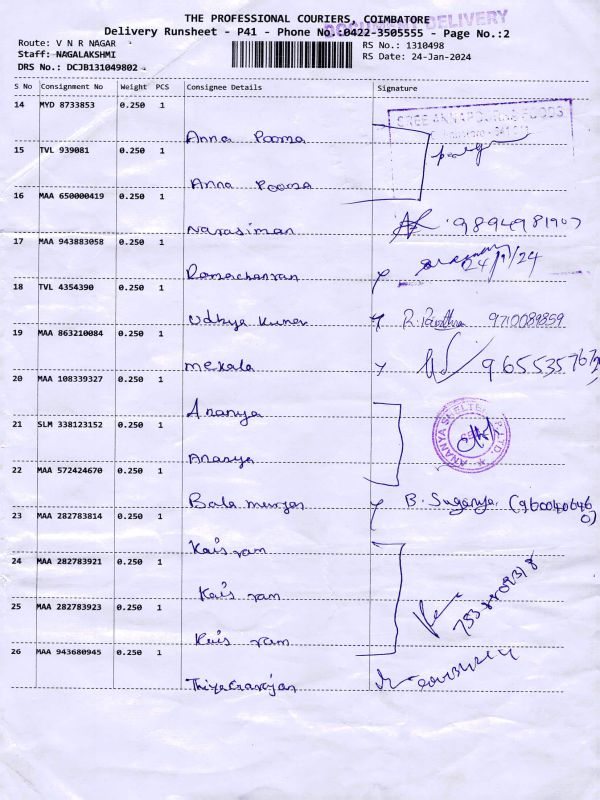 THE PROFESSIONAL COURIERS, COIMBATORE
DOCUMENT DELIVERY
Delivery Runsheet - P41 - Phone No.:0422-3505555 - Page No.:2
Route: V N R NAGAR
RS No.: 1310498
Staff: NAGALAKSHMI
RS Date: 24-Jan-2024
DRS No.: DCJB131049802
S No Consignment No Weight PCS Consignee Details Signature
14 MYD 8733853 0.250 1
Anna Poorna
SREE ANNAPOORNA FOODS
15 TVL 939081 0.250 1
Anna Poorna
16 MAA 650000419 0.250 1
Narasiman
17 MAA 943883058 0.250 1
Ramachanran
24/1/24
18 TVL 4354390 0.250 1
Udhya Kumar
9710089859
19 MAA 863210084 0.250 1
mekala
20 MAA 108339327 0.250 1
Ananya
ANANYA SHELTERS P LTD
21 SLM 338123152 0.250 1
Ananya
22 MAA 572424670 0.250 1
Bala murugan B. Suganya (9600406460)
23 MAA 282783814 0.250 1
ram
24 MAA 282783921 0.250 1
ram
25 MAA 282783923 0.250 1
ram
26 MAA 943680945 0.250 1